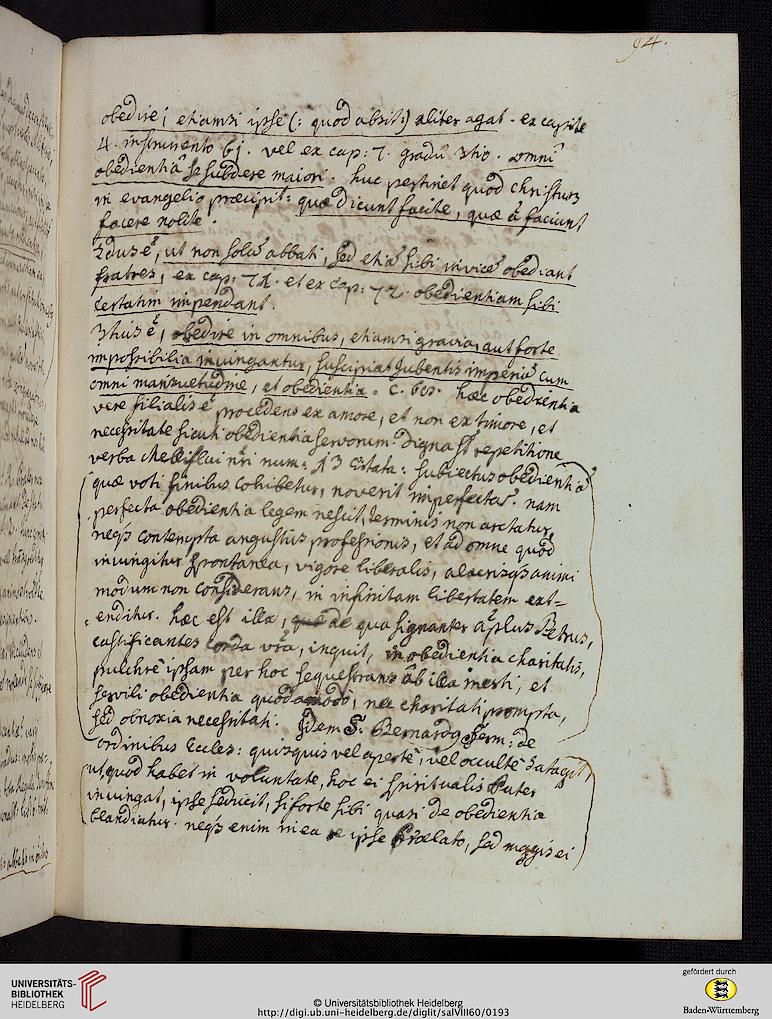 94.
obedire; etiamsi ipse (: quod absit:) aliter agat. ex capite
4. instrumento 61. vel ex cap: 7. gradu 3tio. omni
obedientiâ se subdere maiori. huc pertinet quod Christus
in evangelio præcipit: quæ dicunt facite, quæ ã faciunt
facere nolite.
2dus ẽ, ut non solũ abbati, sed etiã sibi invicẽ obediant
fratres, ex cap: 71. et ex cap: 72. obedientiam sibi
certatim impendant.
3tius ẽ, obedire in omnibus, etiamsi gravia, aut forte
impossibilia iniungantur, suscipiat Iubentis imperiũ cum
omni mansuetudine, et obedientia. c. 68. hæc obedientia
vere filialis ẽ procedens ex amore, et non ex timore, et
necessitate sicuti obedientia servorum. digna st repetitione
verba Melliflui nri num: 13 citata: subiectus obedientiâ
quæ voti finibus cohibetur, noverit imperfectã. nam
perfecta obedientia legem nescit, terminis non arctatur,
neqꝫ contempta angustiis professionis, et ad omne quod
iniungitur spontanea, vigore liberalis, alacrisqꝫ animi
modum non considerans, in infinitam libertatem ext=
enditur. hæc est illa, de qua signanter aplus Petrus,
castificantes corda vra, inquit, in obedientia charitatis,
pulchrè ipsam per hoc sequestrans ab illa inerti, et
servili obedientia quodamodò, nec charitati prompta,
sed obnoxia necessitati. Idem S. Bernardꝰ Serm: de
ordinibus Eccles: quisquis vel apertè, vel occultè satagit,
ut, quod habet in voluntate, hoc ei spiritualis Pater
iniungat, ipse seducit, si forte sibi quasi de obedientia
blandiatur. neqꝫ enim in ea re ipse Prælato, sed magis ei
UNIVERSITÄTS-
BIBLIOTHEK
HEIDELBERG
© Universitätsbibliothek Heidelberg
http://digi.ub.uni-heidelberg.de/diglit/salVIII60/0193
gefördert durch
Baden-Württemberg